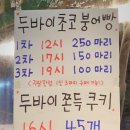 두바이초코붕어빵.
1차 12시 250마리
2차 17시 150마리
3차 19시 100마리
두바이 쫀득쿠키.
16시 45개